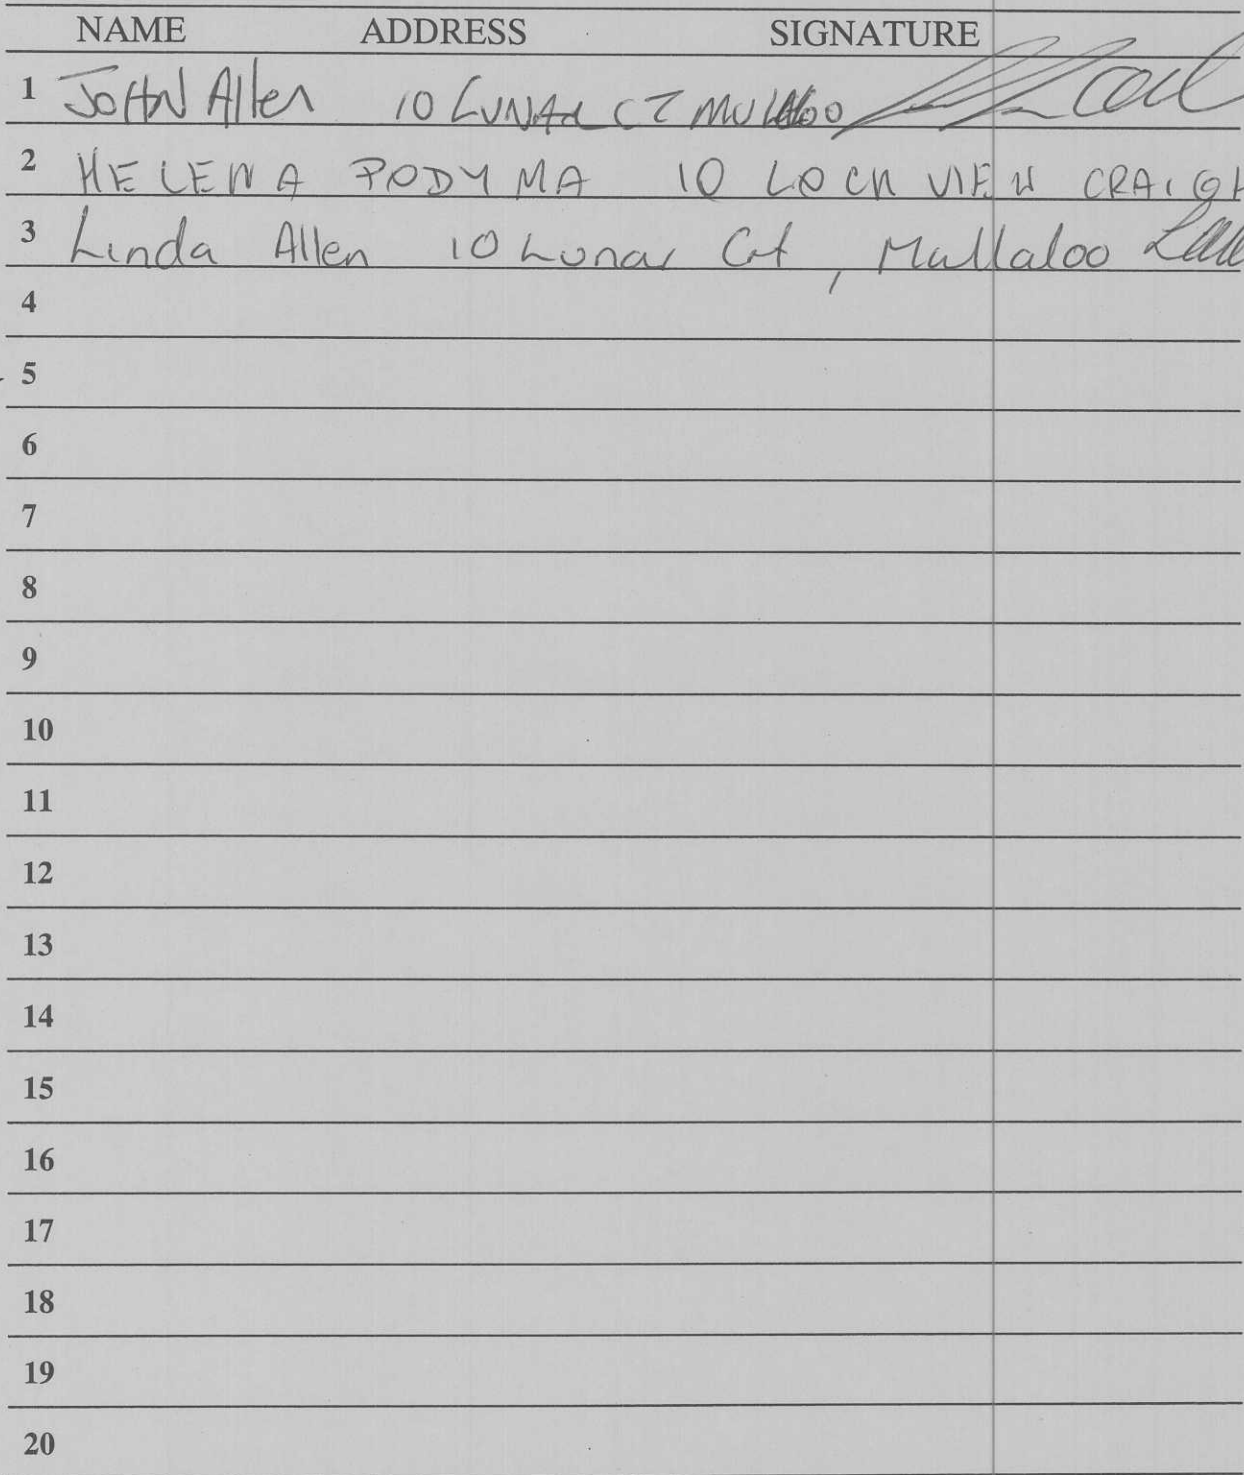 NAME ADDRESS SIGNATURE
1 JOHN Allen 10 LUNAR CT
2 HELENA PODYMA 10 LOCH VIEW CRAIGH
3 Linda Allen 10 Lunar Crt, Mullaloo
4
5
6
7
8
9
10
11
12
13
14
15
16
17
18
19
20